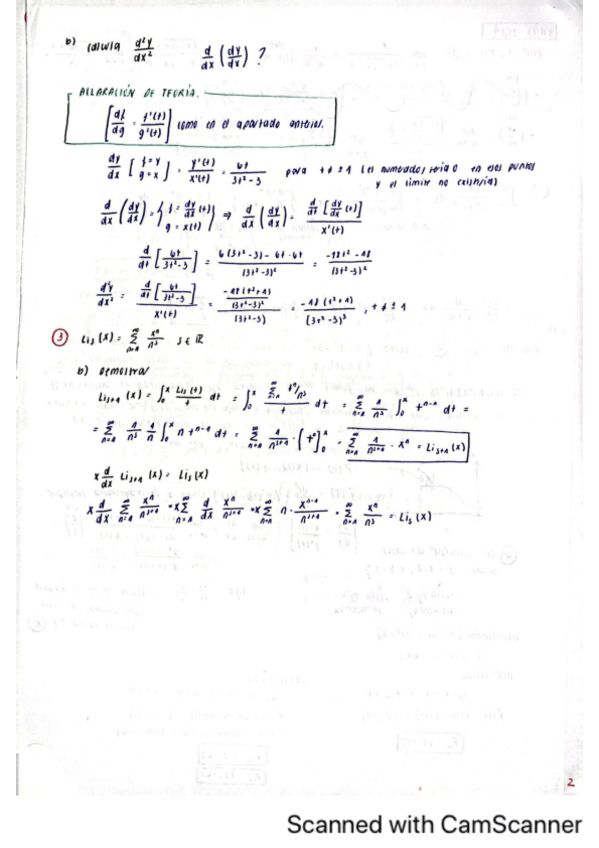 b) Calcula d²y/dx² d/dx (dy/dx) ?
ACLARACIÓN DE TEORÍA.
[df/dg = f'(t)/g'(t)] como en el apartado anterior.
dy/dx [f=y g=x] = y'(t)/x'(t) = 6t/3t²-3 para t ≠ ±1 (el numerador sería 0 en esos puntos
y el límite no existiría)
d/dx (dy/dx) = {f = dy/dx (t) g = x(t)} ⇒ d/dx (dy/dx) = d/dt [dy/dx (t)] / x'(t)
d/dt [6t/3t²-3] = 6(3t²-3) - 6t·6t / (3t²-3)² = -18t²-18 / (3t²-3)²
d²y/dx² = d/dt [6t/3t²-3] / x'(t) = -18(t²+1)/(3t²-3)² / (3t²-3) = -18(t²+1)/(3t²-3)³ , t ≠ ±1
③ Liₛ(x) = ∑ₙ₌₁^∞ xⁿ/nˢ s ∈ ℝ
b) Demostrar
Liₛ₊₁(x) = ∫₀ˣ Liₛ(t)/t dt = ∫₀ˣ ∑ₙ₌₁^∞ tⁿ/nˢ / t dt = ∑ₙ₌₁^∞ 1/nˢ ∫₀ˣ tⁿ⁻¹ dt =
= ∑ₙ₌₁^∞ 1/nˢ 1/n ∫₀ˣ n tⁿ⁻¹ dt = ∑ₙ₌₁^∞ 1/nˢ⁺¹ · [tⁿ]₀ˣ = ∑ₙ₌₁^∞ 1/nˢ⁺¹ · xⁿ = Liₛ₊₁(x)
x d/dx Liₛ₊₁(x) = Liₛ(x)
x d/dx ∑ₙ₌₁^∞ xⁿ/nˢ⁺¹ = x ∑ₙ₌₁^∞ d/dx xⁿ/nˢ⁺¹ = x ∑ₙ₌₁^∞ n · xⁿ⁻¹/nˢ⁺¹ = ∑ₙ₌₁^∞ xⁿ/nˢ = Liₛ(x)
2
Scanned with CamScanner